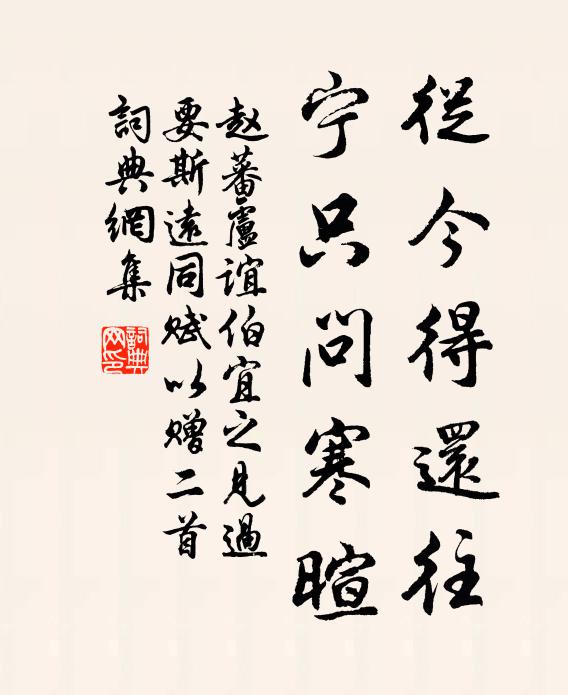 從今得還往
宁只問寒暄
赵蕃盧誼伯宜之見過
要斯遠同赋以赠二首
詞典網集
詞典網印